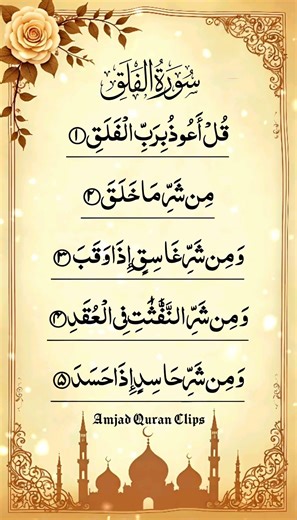 سُورَةُ الْفَلَقِ
قُلْ أَعُوذُ بِرَبِّ الْفَلَقِ ۝١
مِن شَرِّ مَا خَلَقَ ۝٢
وَمِن شَرِّ غَاسِقٍ إِذَا وَقَبَ ۝٣
وَمِن شَرِّ النَّفَّٰثَٰتِ فِى الْعُقَدِ ۝٤
وَمِن شَرِّ حَاسِدٍ إِذَا حَسَدَ ۝٥
Amjad Quran Clips